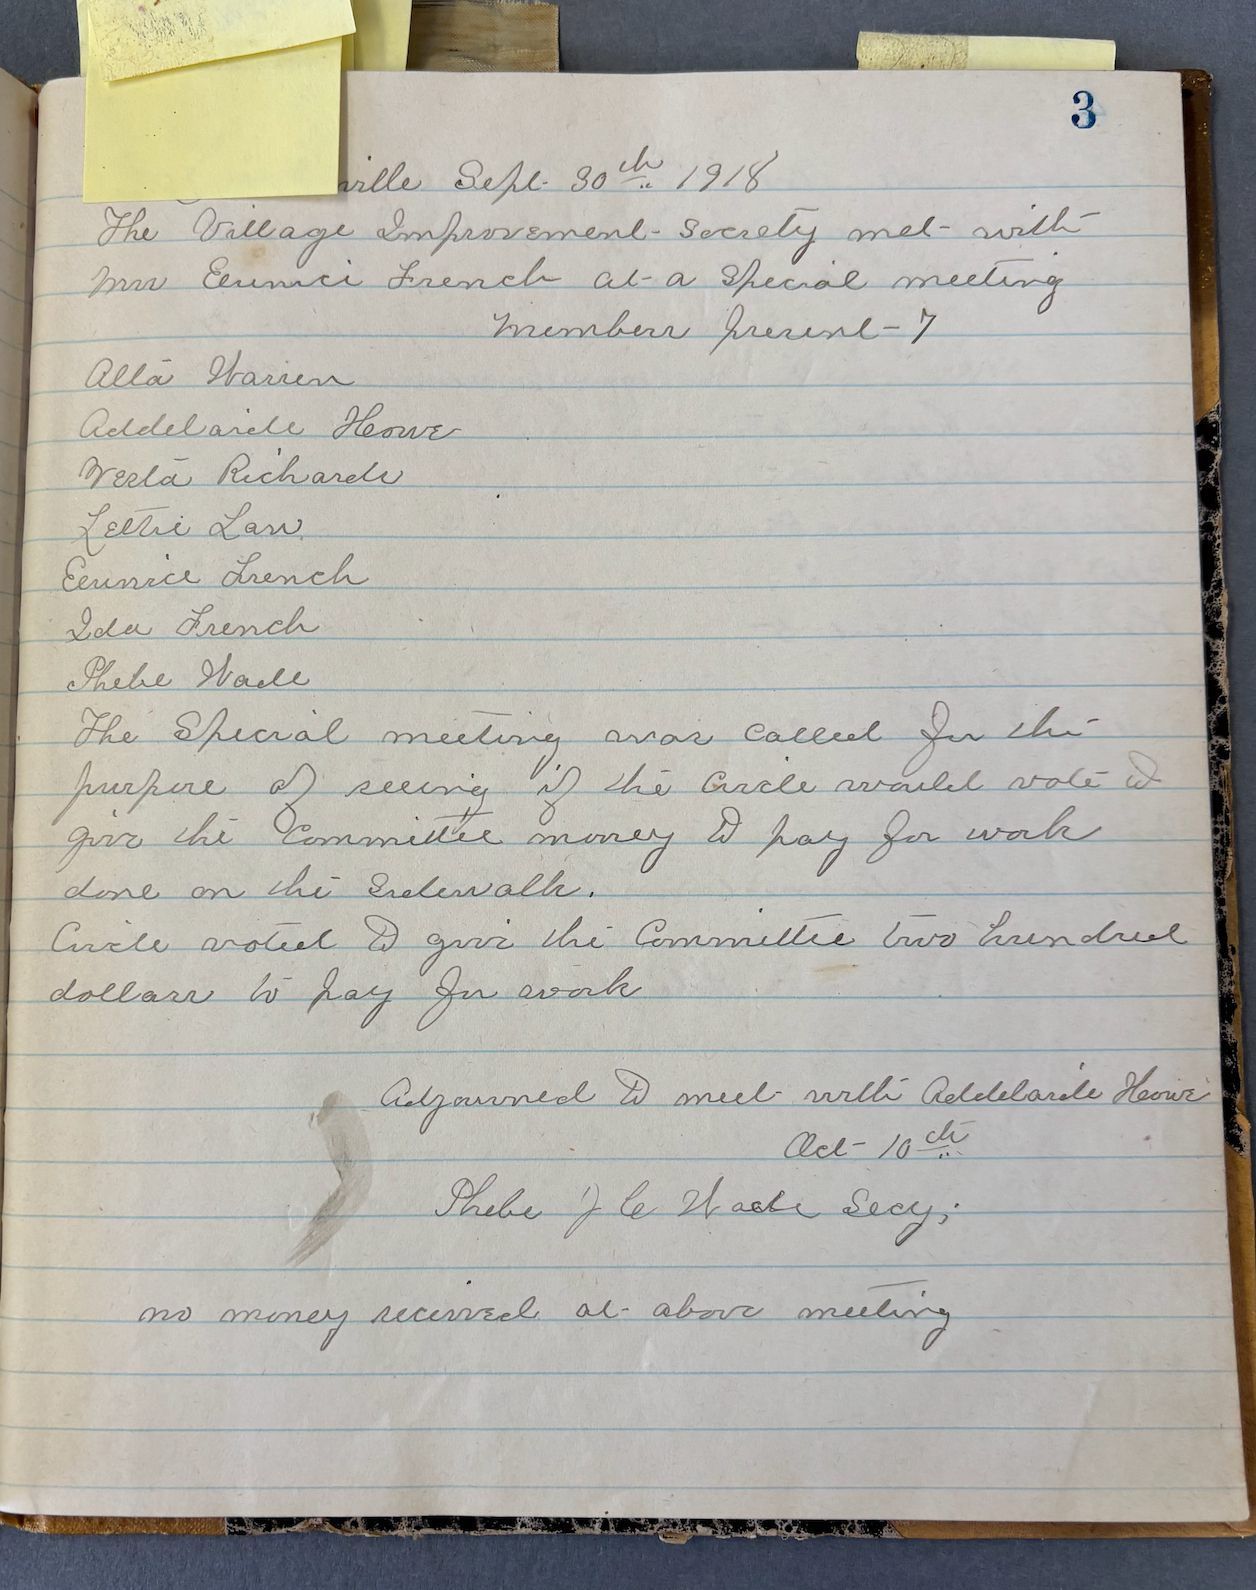 3
ville Sept. 30th 1918
The Village Improvement Society met with
Mrs Eeunice French at a Special meeting
Members present - 7
Alta Warren
Addelaide Howe
Verta Richards
Lettie Law
Eeunice French
Ida French
Phebe Wade
The Special meeting was called for the
purpose of seeing if the Circle would vote to
give the Committee money to pay for work
done on the Sidewalk.
Circle voted to give the Committee two hundred
dollars to pay for work
Adjourned to meet with Addelaide Howe
Oct 10th
Phebe J C Wade Secy;
no money received at above meeting